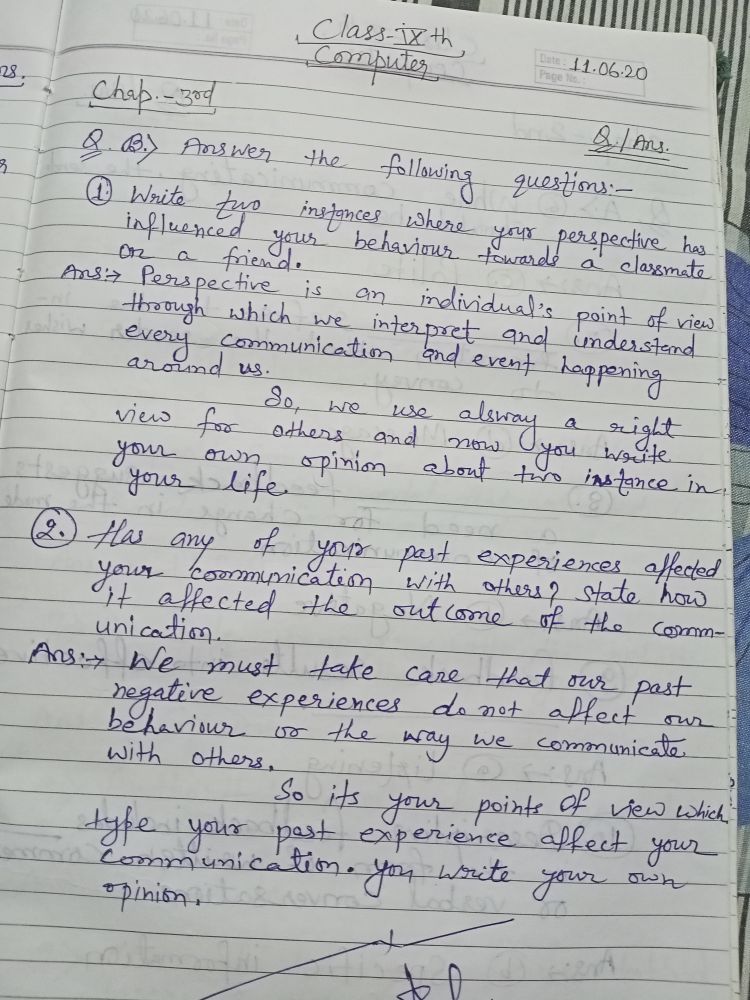 Class-IXth
Computer
Date: 11.06.20
Page No.:
Chap.-3rd
Q/Ans.
Q. B.) Answer the following questions:-
1. Write two instances where your perspective has
influenced your behaviour towards a classmate
or a friend.
Ans:→ Perspective is an individual's point of view
through which we interpret and understand
every communication and event happening
around us.
So, we use alsway a right
view for others and now you write
your own opinion about two instance in
your life.
2. Has any of your past experiences affected
your communication with others? State how
it affected the outcome of the comm-
unication.
Ans:→ We must take care that our past
negative experiences do not affect our
behaviour or the way we communicate
with others.
So its your points of view which
type your past experience affect your
communication. You write your own
opinion.